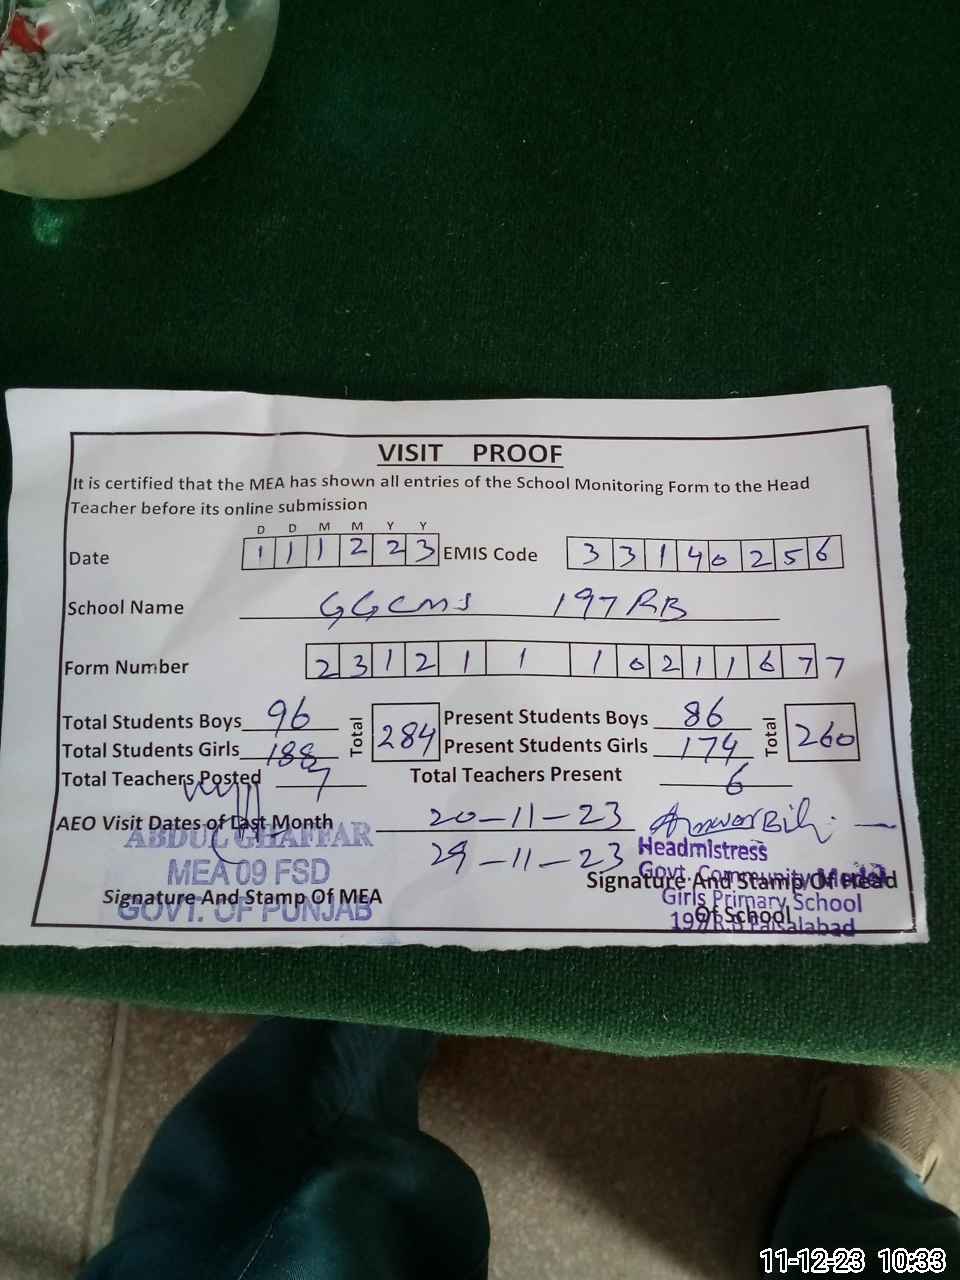 VISIT PROOF
It is certified that the MEA has shown all entries of the School Monitoring Form to the Head
Teacher before its online submission
D D M M Y Y
Date 1 1 1 2 2 3 EMIS Code 3 3 1 4 0 2 5 6
School Name GGCMS 197 RB
Form Number 2 3 1 2 1 1 1 0 2 1 1 6 7 7
Total Students Boys 96 Total 284 Present Students Boys 86 Total 260
Total Students Girls 188 Present Students Girls 174
Total Teachers Posted 7 Total Teachers Present 6
AEO Visit Dates of Last Month 20-11-23
29-11-23
ABDUL GHAFFAR
MEA 09 FSD
GOVT. OF PUNJAB
Signature And Stamp Of MEA
Headmistress
Govt. Community Model
Girls Primary School
197 R.B Faisalabad
Signature And Stamp Of Head
Of School
11-12-23 10:33